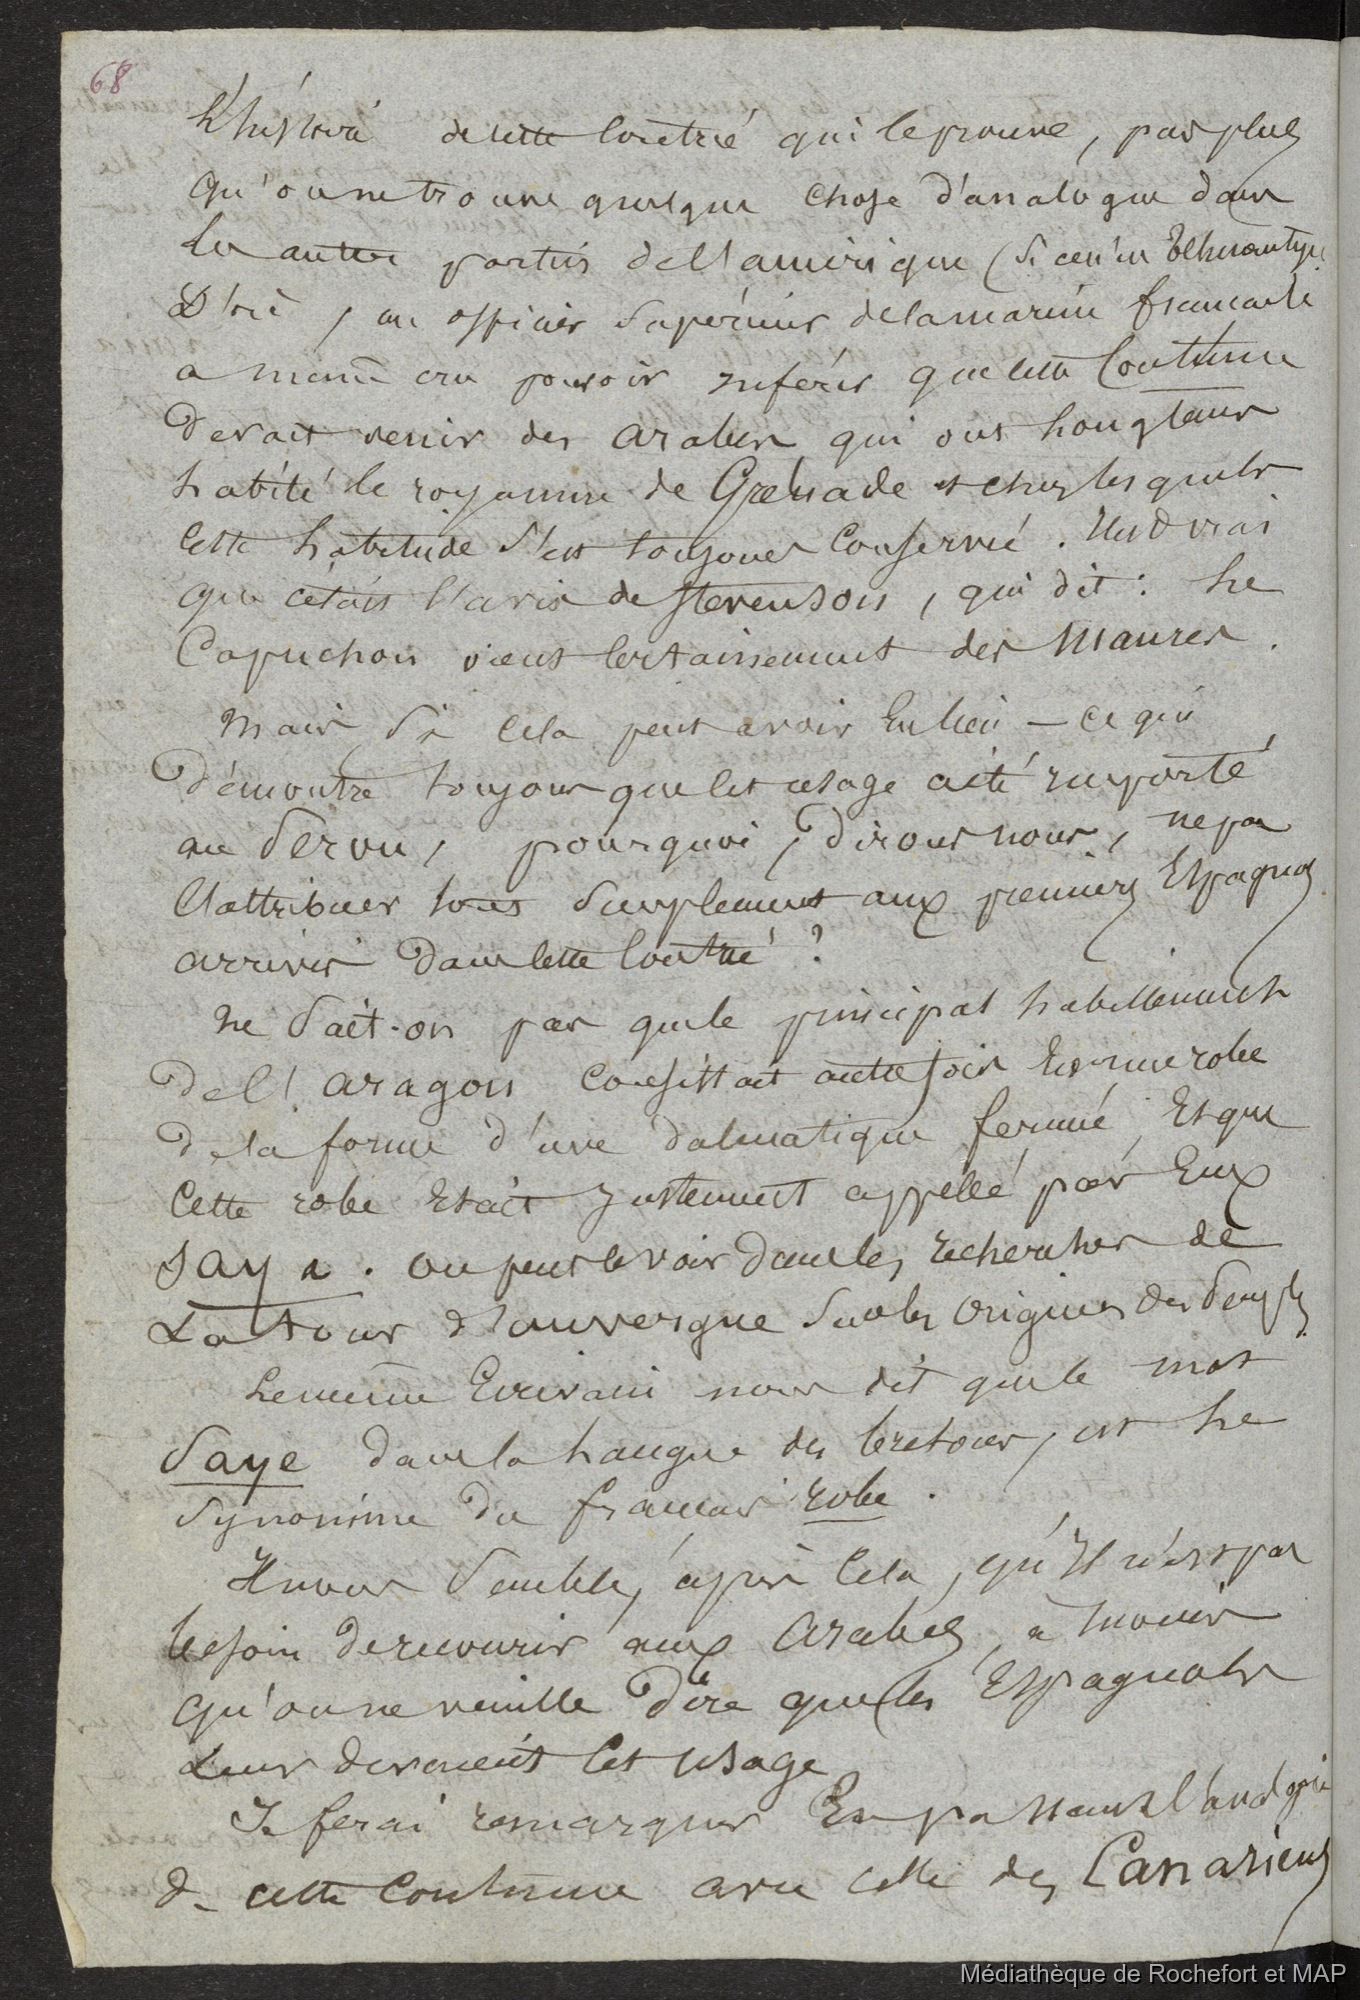 68
L'histoire de cette Contrée qui le prouve, pas plus
qu'on ne trouve quelque chose d'analogue dans
Les autres parties de l'amérique (Si ce n'en
D'ici, un officier Supérieur de la marine française
a même cru pouvoir inférer que cette Coutume
Devait venir des arabes qui ont Longtems
habité le royaume de Grenade et chez lesquels
Cette habitude S'est toujours Conservée. Il est vrai
que c'étais l'avis de Stevenson, qui dit : Le
Capuchon vient Certainement des Maures.
Mais Si Cela peut avoir Eu lieu — ce qui
Démontre toujours que cet usage a été importé
au Perou, pourquoi, Dirons nous, ne pas
L'attribuer tout Simplement aux premiers Espagnols
arrivés Dans Cette Contrée ?
Ne Sait-on pas que le principal habillement
De l'aragon Consistait autrefois En une robe
De la forme d'une dalmatique fermée, Et que
Cette robe Etait Justement appélée par Eux
Saya. on peut le voir Dans les recherches de
La tour d'auvergne Sur les origines des Peuples.
Le même Ecrivain nous dit que le mot
Saye Dans la Langue des bretons, est Le
Synonime Du français robe.
Il nous Semble, après Cela, qu'Il n'est pas
besoin De recourir aux Arabes, à moins
qu'on ne veuille Dire que les Espagnols
Leur devaient Cet usage
Je ferai remarquer En passant l'analogie
De cette Coutume avec Celle des Canariens
Médiathèque de Rochefort et MAP